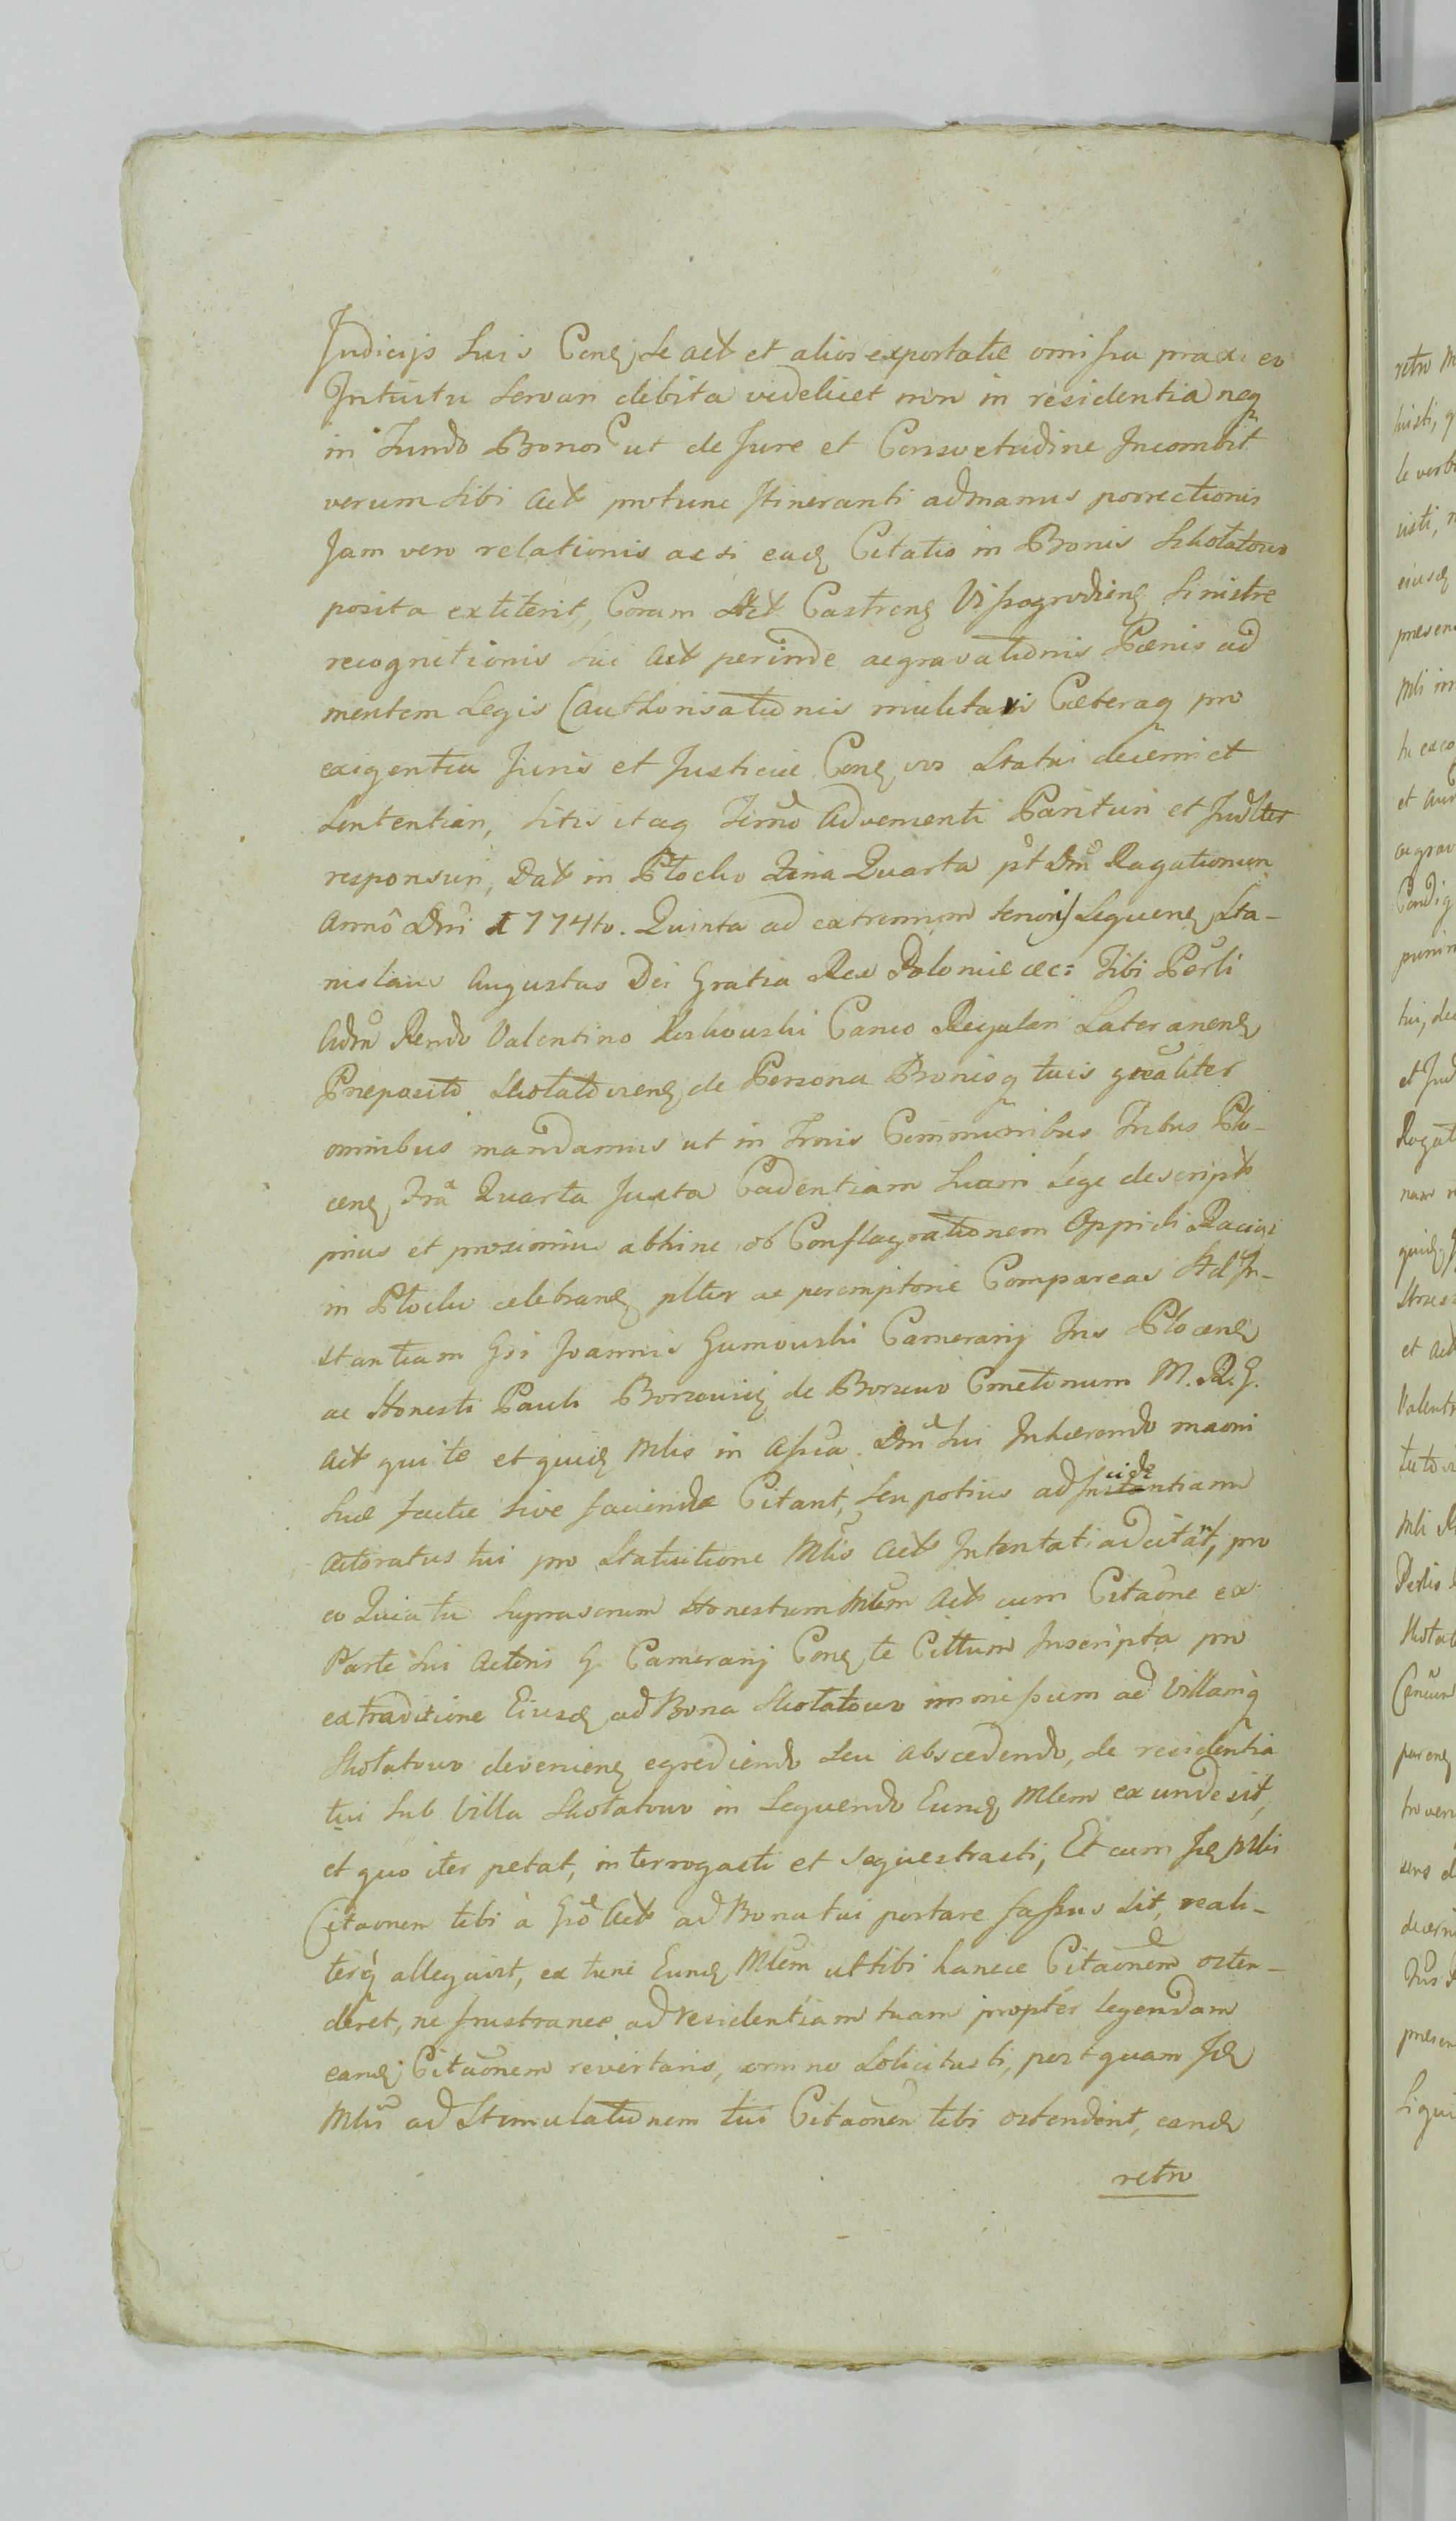 Judicijs Suis Conq̃ de act et alios exportatæ omissa praxi eo
Intuitu servari debita videlicet non in residentia neq
in Fundo Bonor ut de Jure et Consvetudine Incombit
verum sibi Act protunc Itineranti admanus porrectionis
Jam vero relationis ac si eadq̃ Citatio in Bonis Skołatowo
posita extiterit, Coram Act Castrenq̃ Vissogrodienq̃ Sinistre
recognitionis sui Act perinde aggravationis Pœnis ad
mentem Legis (authorisationis mulctari Cæteraq pro
exigentia Juris et Justiciæ Conq̃ vos Statui decerni et
Sententiari, Sitis itaq Termo Advenienti Parituri et Judlter
responsuri, Dat in Płocko Feria Quarta pt Dm Rogationum
Anno Dni 1774to. Quinta ad extremum tenoris Sequenq̃ Sta-
nislaus Augustus Dei Gratia Rex Poloniæ &c: Tibi Perli
Adm Rendo Valentino Roskowski Canco Regulari Lateranenq̃
Præposito Skołatovienq̃ de Persona Bonisq tuis gnaliter
omnibus mandamus ut in Trmis Communibus Tribus Plo-
cenq̃ Fria Quarta Juxta Cadentiam Suam Lege descript
prius et proximius abhinc ob Conflagrationem Oppidi Raciąż
in Płocku celebranq̃ pltur ac peremptorie Compareas Ad In-
stantiam Gsi Joannis Gumowski Camerarij Tris Plocenq̃
ac Honesti Pauli Borzowiq̃ de Borzewo Cmetonum M. R. G.
Act qui te et quidq̃ Mlis in Assa Dni sui Inhærendo maoni
Suæ factæ sive faciendæ Citant, seu potius ad Incidentiam
Actoratus tui pro Statuitione Mlis Act Intentati adcitant, pro
eo Quia tu Suprascrum Honestum Mlem Act cum Citaone ex
Parte Sui Actoris G. Camerarij Conq̃ te Cittum Inscripta pro
extraditione Eiusdq̃ ad Bona Skołatowo immissum ad Villamq̃
Skołatowo devenienq̃ egrediendo seu abscedendo, de residentia
tui sub Villa Skołatowo in Sequendo Eundq̃ Mlem ex unde sit,
et quo iter petat, interrogasti et sequestrasti, Et cum Idq̃ Mlis
Citaonem tibi à Gso Act ad Bona tui portare fassus sit, reali-
terq̃ allegavit, ex tunc Eundq̃ Mlem ut tibi hancce Citaonem osten-
deret, ne frustranee ad residentiam tuam propter legendam
eandq̃ Citaonem revertaris, omno Solicitasti, postquam Idq̃
Mlis ad Stimulationem tui Citaonem tibi ostenderit, eandq̃
retro